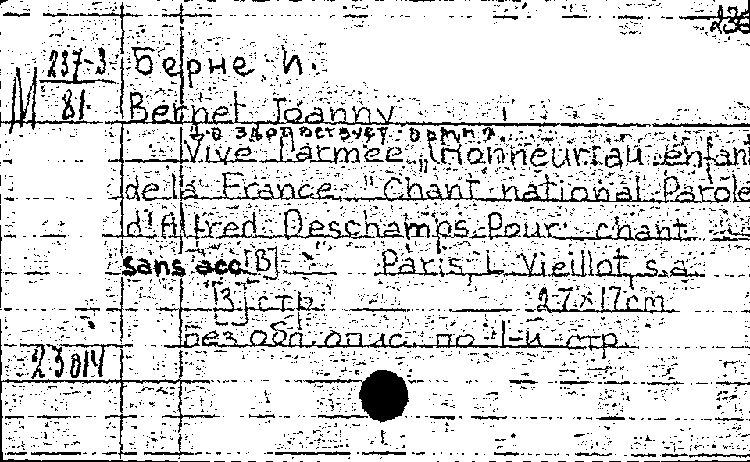 236
M 237-3 Берне, И.
81
Bernet Joanny
Да здравствует армия
Vive l'armée „(Honneur au enfant
de la France." Chant national Parole
d'Alfred Deschamps. Pour chant
sans acc. [B] Paris, L. Vieillot, s.a.
[3] стр. 27x17cm
Без обл. опис. по 1-й стр.
23014